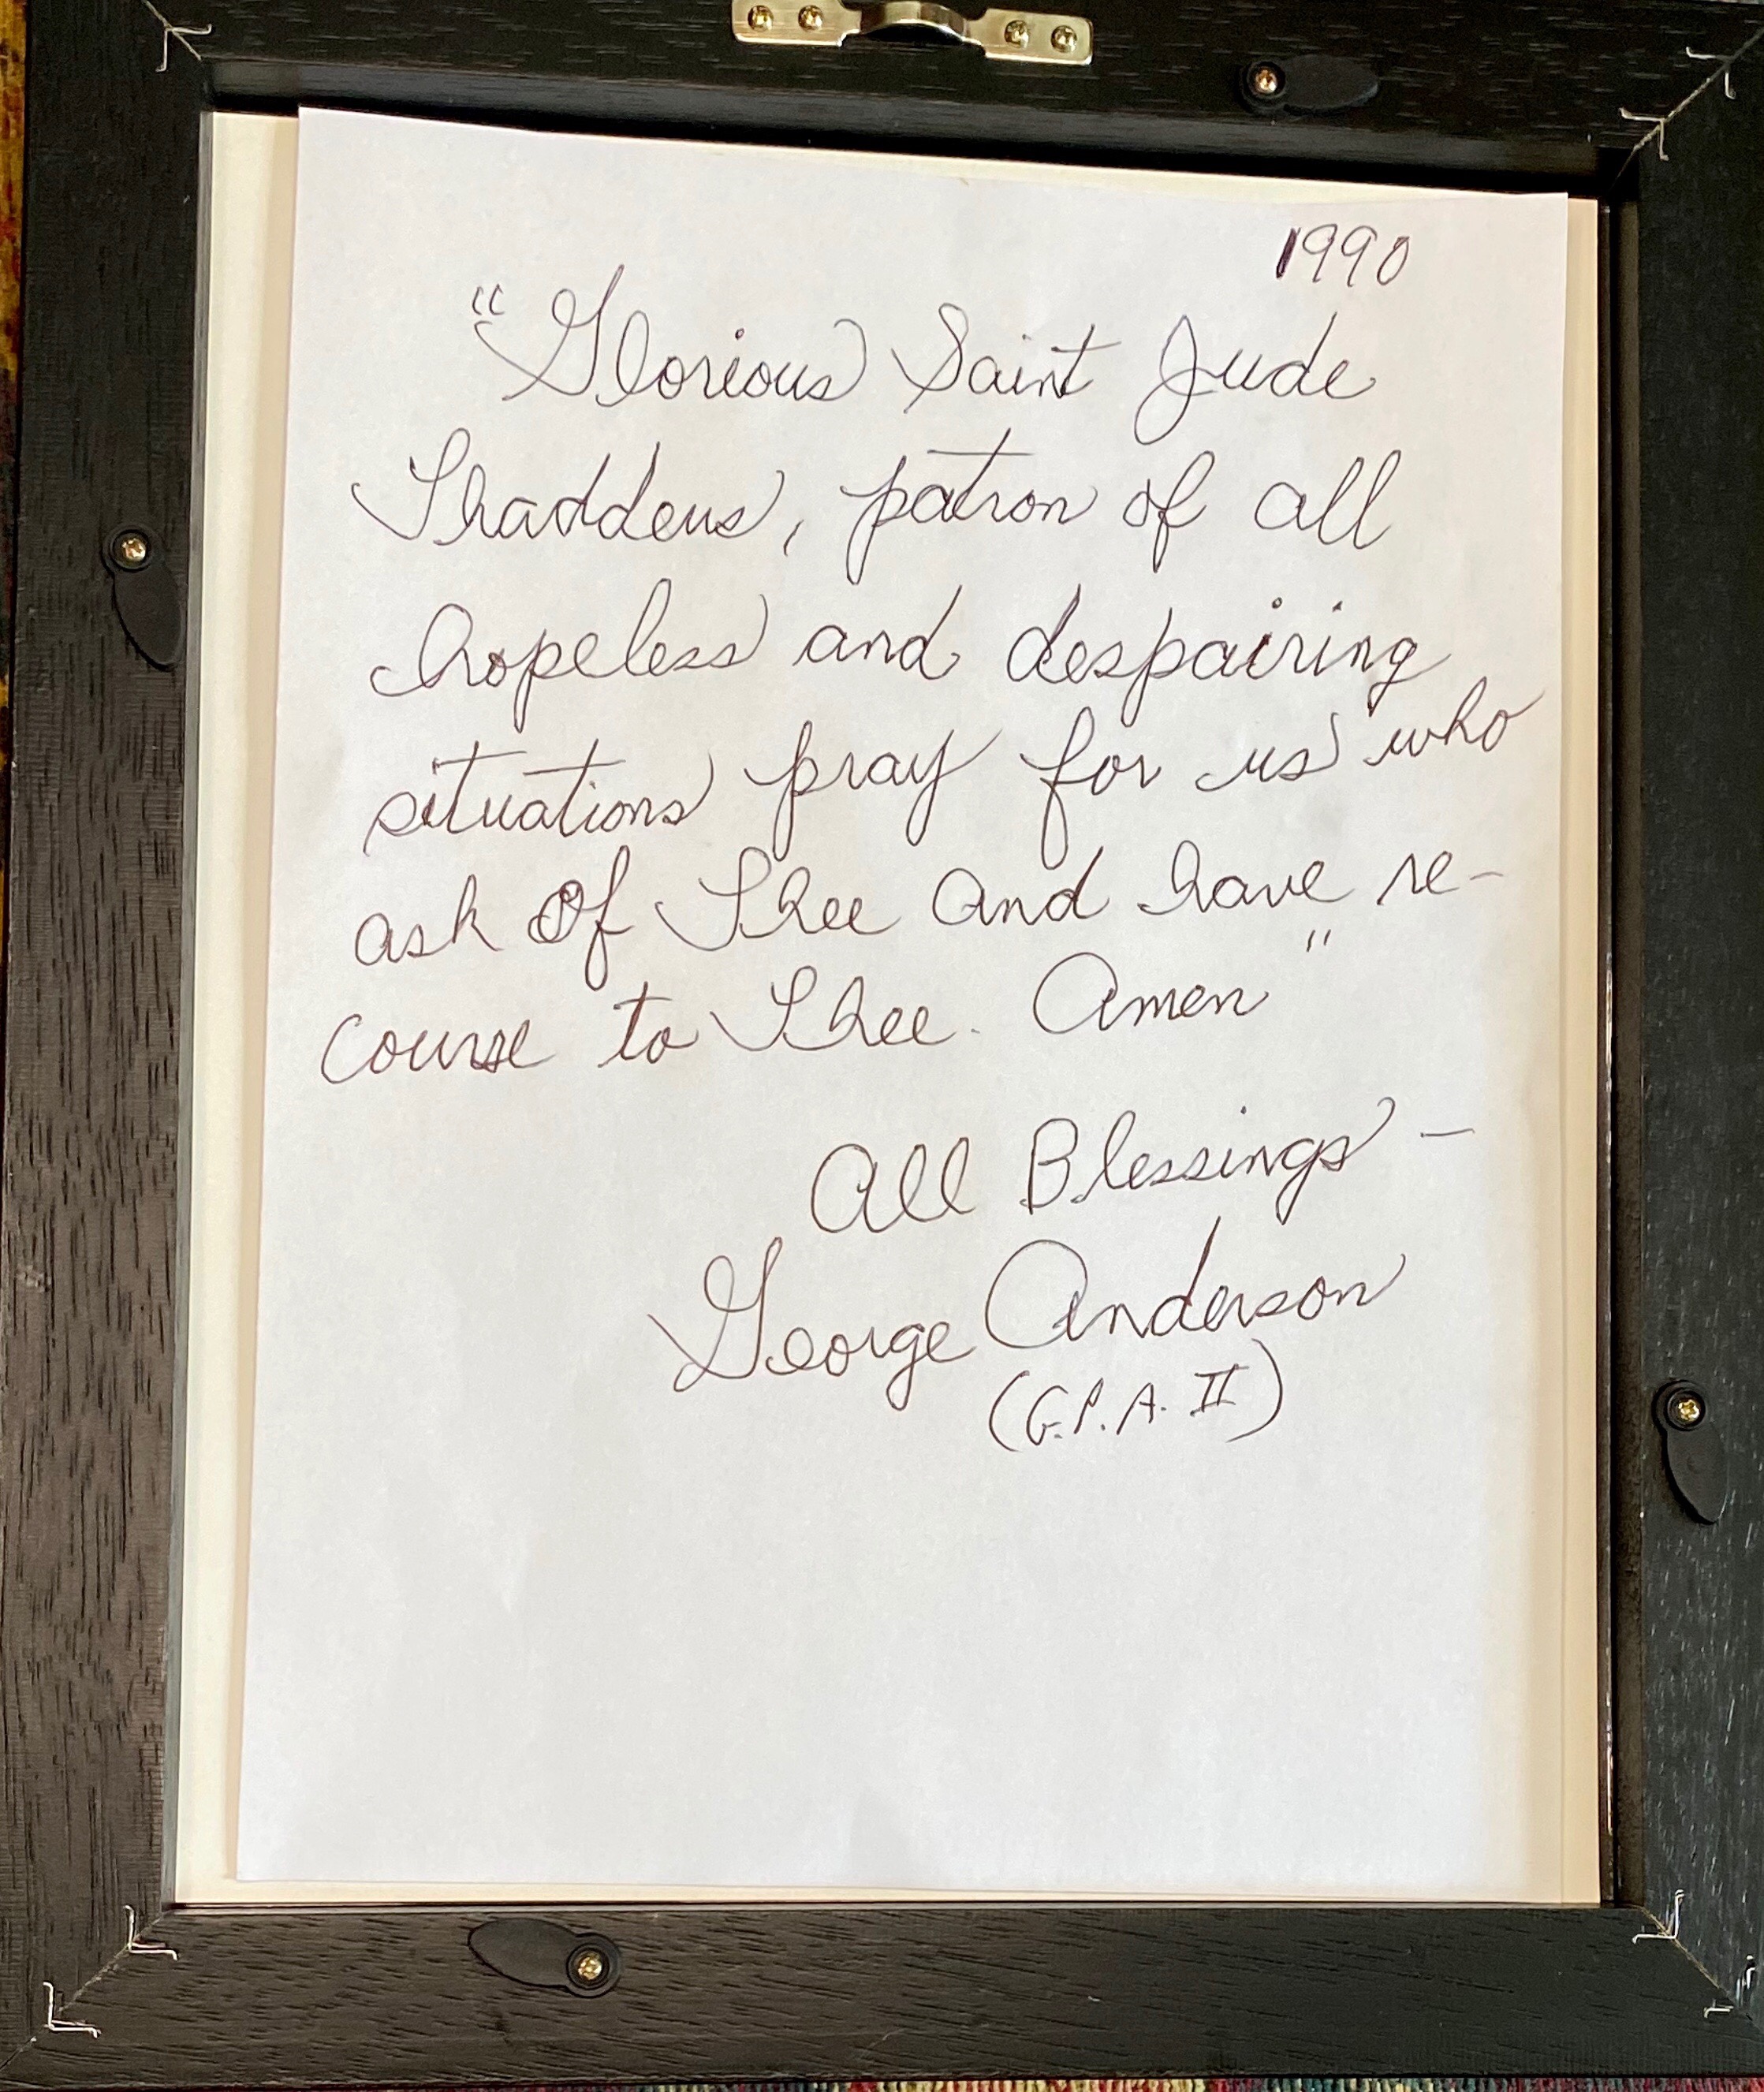 1990
"Glorious Saint Jude
Thaddeus, patron of all
hopeless and despairing
situations pray for us who
ask of Thee and have re-
course to Thee. Amen"
All Blessings -
George Anderson
(G.P.A. II)